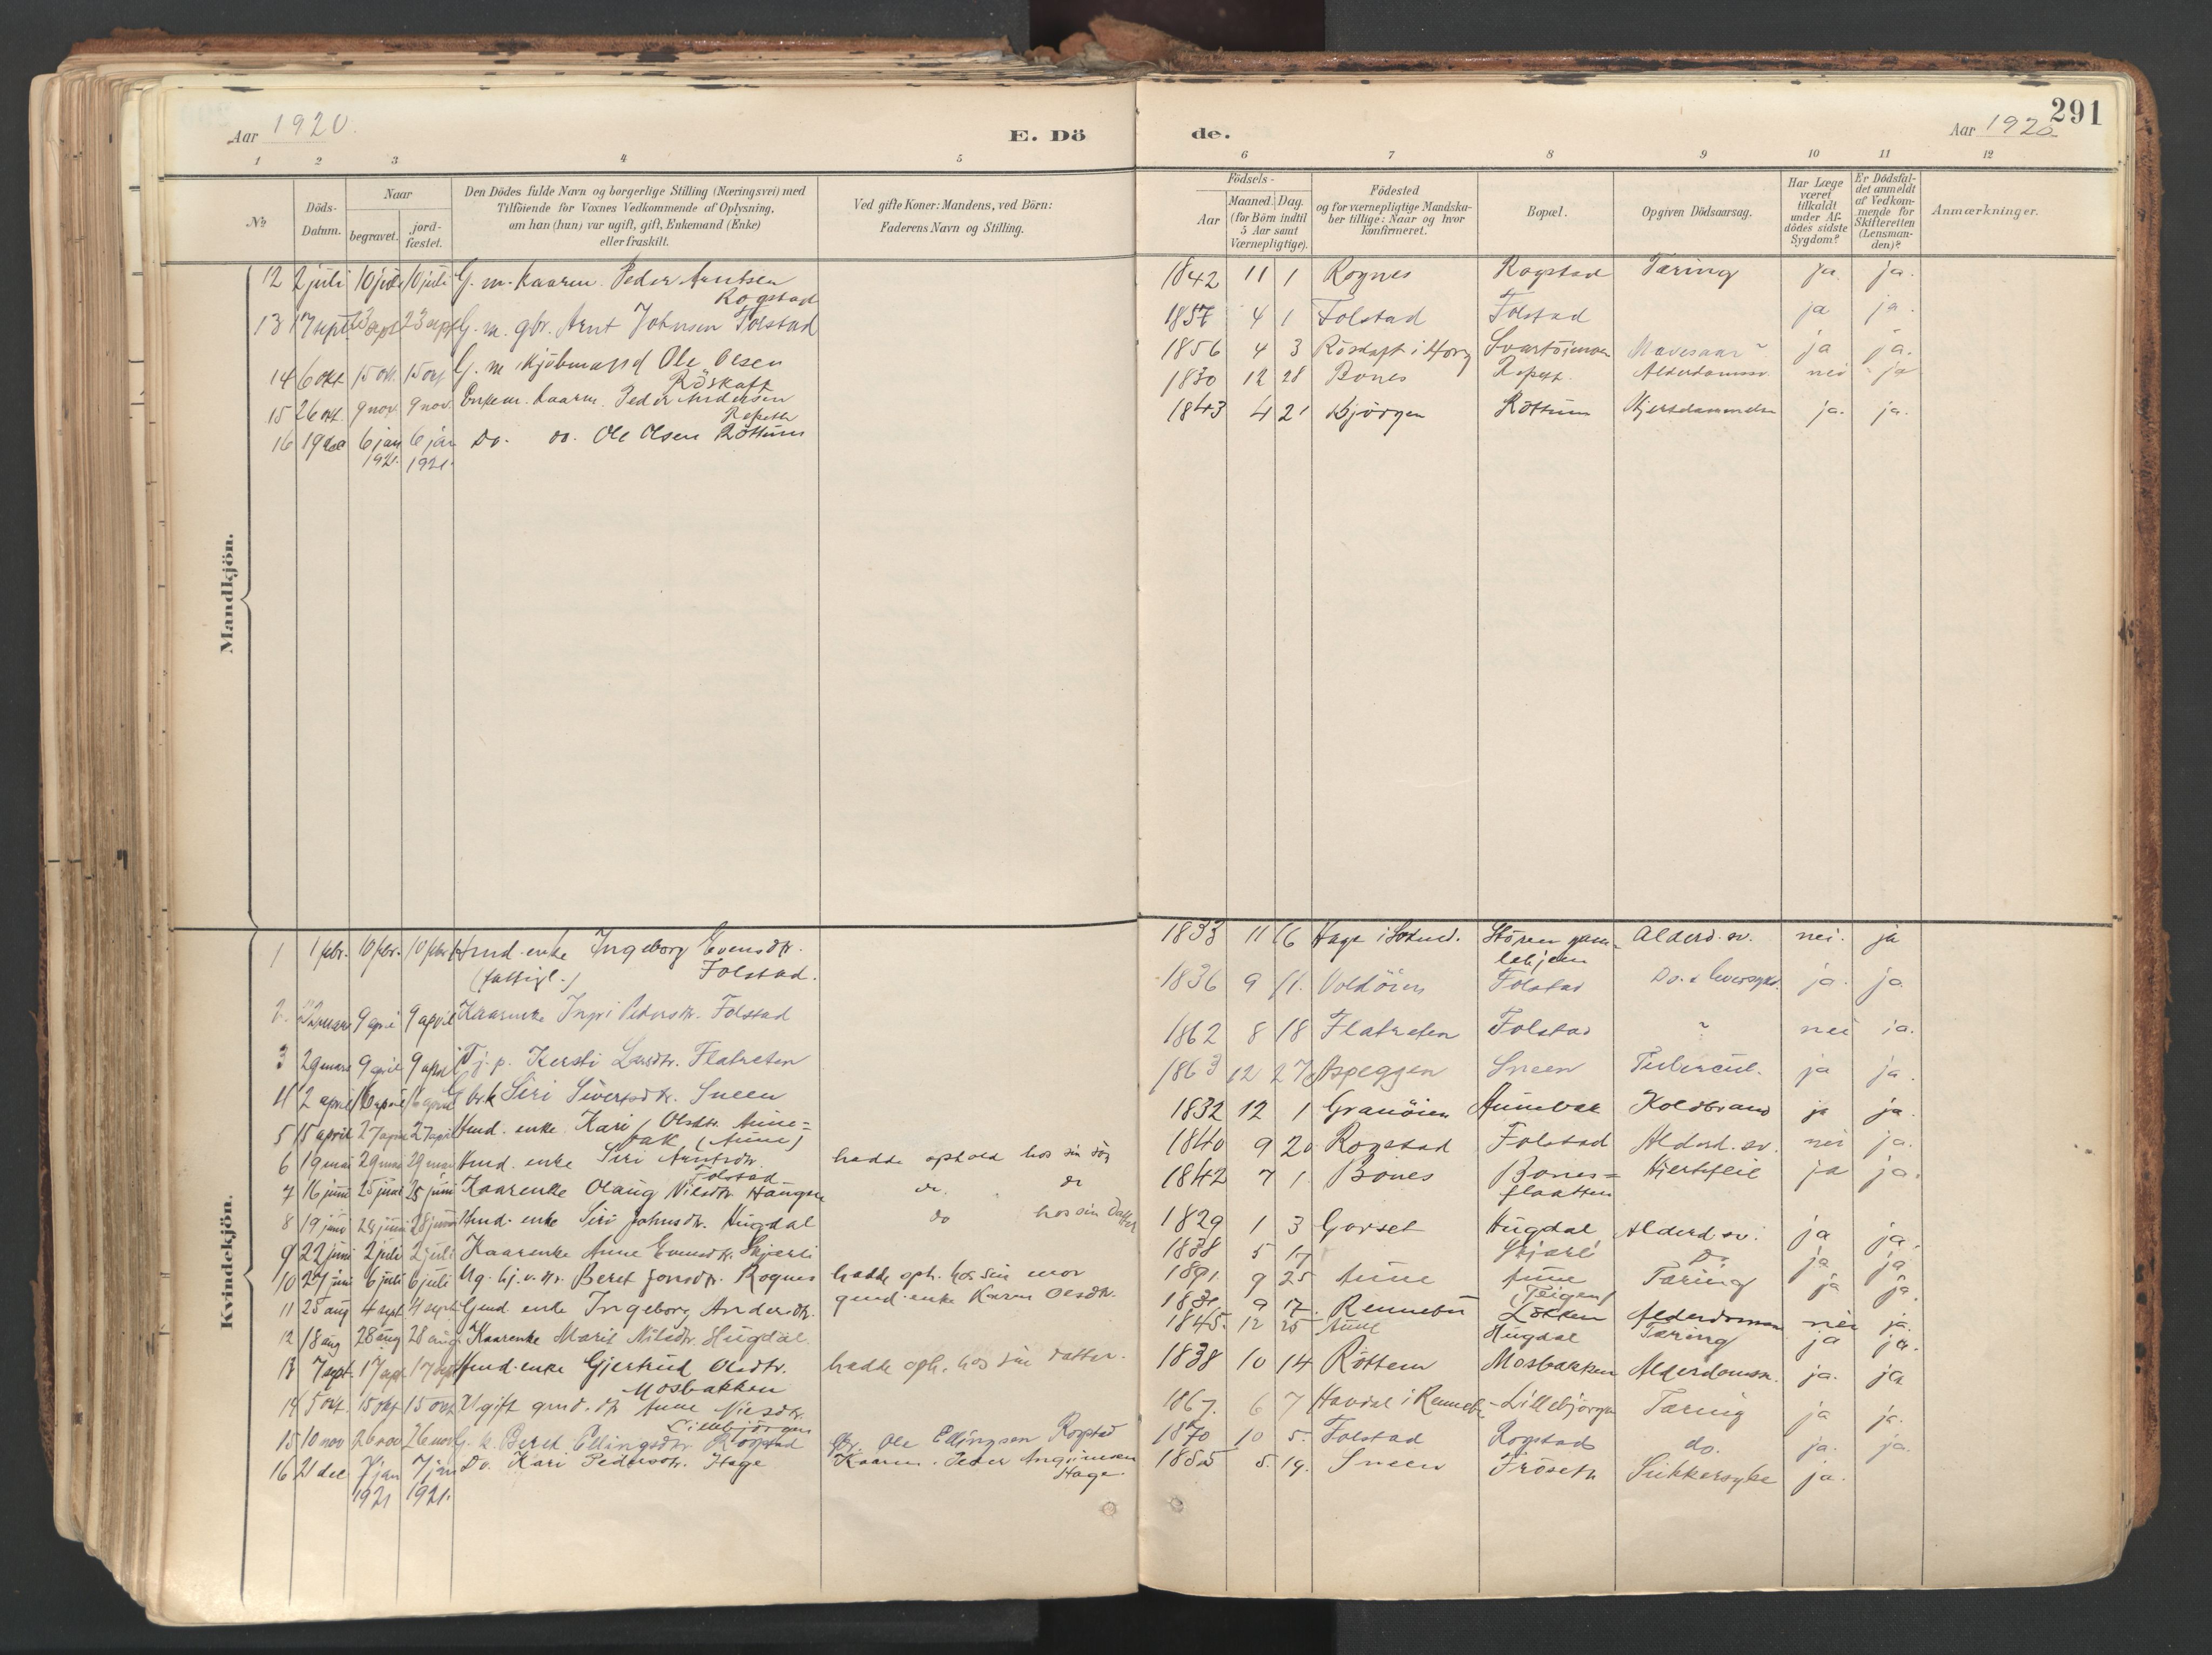 291
Aar 1920.
E. Dö
de.
Aar 1920
1 2 3 4 5 6 7 8 9 10 11 12
No
Döds-
Datum.
Naar
begravet.
jord-
fæstet.
Den Dödes fulde Navn og borgerlige Stilling (Næringsvei) med
Tilföiende for Voxnes Vedkommende af Oplysning,
om han (hun) var ugift, gift, Enkemand (Enke)
eller fraskilt.
Ved gifte Koner: Mandens, ved Börn:
Faderens Navn og Stilling.
Födsels-
Aar
Maaned. Dag.
(for Börn indtil
5 Aar samt
Værnepligtige).
Födested
og for værnepligtige Mandska-
ber tillige: Naar og hvor
konfirmeret.
Bopæl.
Opgiven Dödsaarsag.
Har Læge
været
tilkaldt
under Af-
dödes sidste
Sygdom?
Er Dödsfal-
det anmeldt
af Vedkom-
mende for
Skifteretten
(Lensman-
den)?
Anmærkninger.
Mandkjön.
12 2 juli 10 juli 10 juli G. m. kaarm. Peder Arntsen
Rogstad
1842 11 1 Rognes Rogstad Tæring ja. ja.
13 17 sept 23 sept 23 sept G. m. gbr. Arnt Johnsen Folstad
1857 4 1 Folstad Folstad ja ja.
14 6 okt. 15 okt. 15 okt G. m kjöbmand Ole Olsen
Röskaft
1856 4 3 Röskaft i Horg Svartöimoen Mavesaar ja ja.
15 26 okt. 9 nov. 9 nov. Enkem. kaarm. Peder Andersen
Repeth
1830 12 28 Bones Repeth. Alderdomssv. nei ja
16 19 dec 6 jan 6 jan Do. do. Ole Olsen Röttum
1921. 1921.
1843 4 21 Bjørgen Röttum Hjertelammelse ja. ja.
Kvindekjön.
1 1 febr. 10 febr. 10 febr Hmd. enke Ingeborg Evensdtr.
(fattigl.) Folstad.
1833 11 16 Hage i Soknd. Stören gam-
lehjem Alderd. sv. nei. ja
2. 22 mars 9 april 9 april Kaarenke Ingri Pedersdtr. Folstad
1836 9 11. Voldöien Folstad Do. & leversygd. ja. ja
3 29 mars 9 april 9 april Tj. p. Kersti Larsdtr. Flatreten
1862 8 18 Flatreten Folstad ? nei ja.
4 2 april 16 april 16 april Gbrk Siri Sivertsdtr. Sneen
1863 12 27 Aspeggen Sneen Tubercul. ja ja.
5 15 april 27 april 27 april Hmd. enke Kari Olsdtr. Aune=
bak (Aune)
1832 12 1 Granöien Aunebak Koldbrand ja ja.
6 19 mai 29 mai 29 mai Hmd. enke Siri Arntsdtr.
Folstad
hadde ophold hos sin søn
1840 9 20 Rogstad Folstad Alderd. sv. nei ja.
7 16 juni 25 juni 25 juni Kaarenke Olaug Nilsdtr. Haugen do. do
1842 7 1. Bones Bones=
flaatten Hjertefeil ja ja.
8 19 juni 28 juni 28 juni Hmd. enke Siri Johnsdtr. Hugdal do hos sin datter
1829 1 3 Gorset Hugdal Alderd sv. ja ja.
9 22 juni 2 juli 2 juli Kaarenke Anne Evensdtr. Skjærli
1838 5 17 Skjærli Do ja ja
10 27 juni 6 juli 6 juli Ug. hj. v. dtr. Beret Jonsdtr. Rognes hadde oph. hos sin mor
gmd. enke Karen Olsdtr.
1891. 9 25 Aune Aune
(Teigen) Tæring ja ja.
11 25 aug 4 sept 4 sept Gmd enke Ingeborg Andersdtr.
1831 9 17. Rennebu Lökken Alderdommen nei ja.
12 18 aug 28 aug 28 aug Kaarenke Marit Nilsdtr. Hugdal
1845. 12 25 Aune Hugdal Tæring ja ja.
13 7 sept. 17 sept. 17 sept Hmd. enke Gjertrud Olsdtr.
Mosbakken
hadde oph. hos sin datter.
1838 10 14 Röttem Mosbakken Alderdomssv. ja. ja
14 5 okt. 15 okt 15 okt Ugift gmd. dtr Anne Nilsdtr.
Lillebjörgen
1867. 6 7 Havdal i Rennebu Lillebjörgen Tæring ja ja.
15 10 nov 26 nov 26 nov G. k. Beret Ellingsdtr. Rogstad Gbr. Ole Ellingsen Rogstad
1870 10 5. Folstad Rogstad do. ja. ja.
16 21 dec 7 jan 7 jan Do. Kari Pedersdtr. Hage Kaarm. Peder Arngrimsen
Hage
1921 1921.
1855 5. 19. Sneen Fröseth Sukkersyke ja.